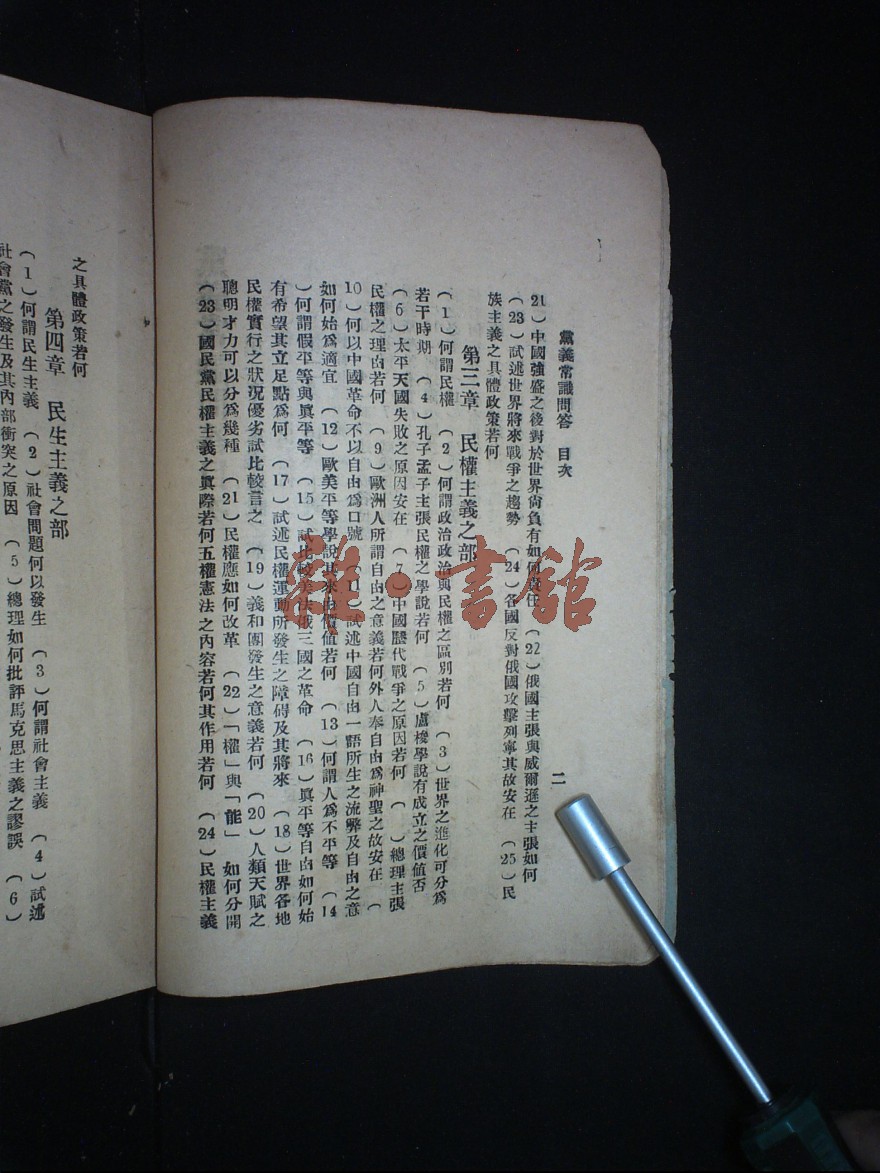 黨義常識問答　目次
二
21）中國強盛之後對於世界尙負有如何責任　（22）俄國主張與威爾遜之主張如何
（23）試述世界將來戰爭之趨勢　（24）各國反對俄國攻擊列寧其故安在　（25）民
族主義之具體政策若何
第三章　民權主義之部
（1）何謂民權　（2）何謂政治政治與民權之區別若何　（3）世界之進化可分爲
若干時期　（4）孔子孟子主張民權之學說若何　（5）盧梭學說有成立之價值否
（6）太平天國失敗之原因安在　（7）中國歷代戰爭之原因若何　（　）總理主張
民權之理由若何　（9）歐洲人所謂自由之意義若何外人奉自由爲神聖之故安在　（
10）何以中國革命不以自由爲口號　（11）試述中國自由一語所生之流弊及自由之意
如何始爲適宜　（12）歐美平等學說其來由價值若何　（13）何謂人爲不平等　（14
）何謂假平等與眞平等　（15）試比較美法俄三國之革命　（16）眞平等自由如何始
有希望其立足點爲何　（17）試述民權運動所發生之障碍及其將來　（18）世界各地
民權實行之狀況優劣試比較言之　（19）義和團發生之意義若何　（20）人類天賦之
聰明才力可以分爲幾種　（21）民權應如何改革　（22）「權」與「能」　如何分開
（23）國民黨民權主義之眞際若何五權憲法之內容若何其作用若何　（24）民權主義
之具體政策若何
第四章　民生主義之部
（1）何謂民生主義　（2）社會問題何以發生　（3）何謂社會主義　（4）試述
社會黨之發生及其內部衝突之原因　（5）總理如何批評馬克思主義之謬誤　（6）
雜·書館